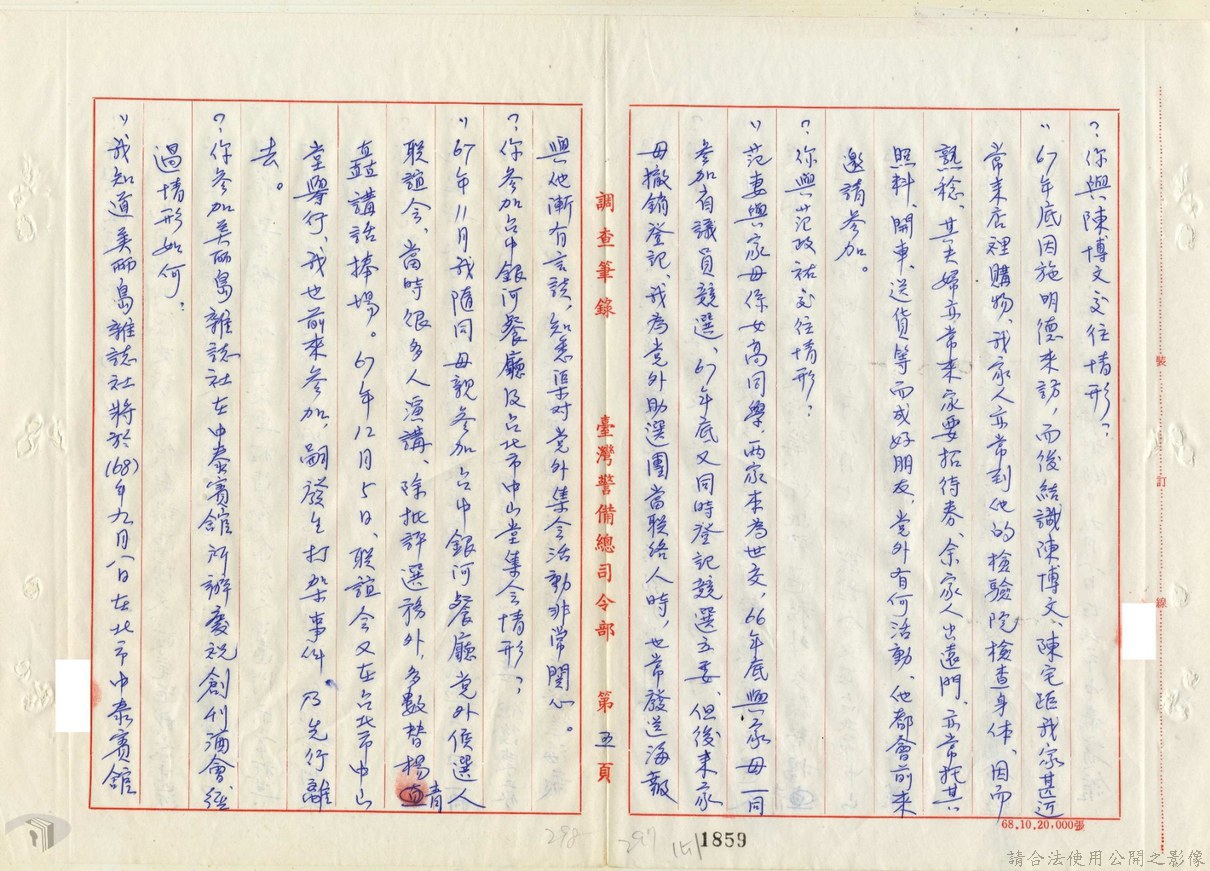 ?:你與陳博文交往情形?:
":67年底因施明德來訪,而後結識陳博文、陳宅距我家甚近
常來店裡購物、我家人亦常到他的檢驗院檢查身体、因而
熟稔、其夫婦亦常來家要招待券、余家人出遠門、亦常托其
照料、開車、送貨等而成好朋友、党外有何活動、他都會前來
邀請參加。
?:你與范政祐交往情形?:
":范妻與家母係女高同學、兩家本為世交,66年底與家母一同
參加省議員競選、67年底又同時登記競選立委、但後來家
母撤銷登記、我為党外助選團當聯絡人時,也常發送海報
調查筆錄 臺灣警備總司令部 第五頁
與他漸有言談,知悉渠对党外集会活動非常関心。
?:你參加台中銀河餐廳及台北市中山堂集会情形?:
":67年11月我隨同母親參加台中銀河餐廳党外候選人
聯誼会、當時很多人演講、除批評選務外,多數替楊青
矗講話捧場。67年12月5日、聯誼会又在台北市中山
堂舉行、我也前來參加,嗣發生打架事件、乃先行離
去。
?:你參加美丽島雜誌社在中泰賓館所辦慶祝創刊酒會經
過情形如何?:
":我知道美丽島雜誌社將於(68)年九月八日在北市中泰賓館
裝 訂 線
68.10.20,000張
298
297
1859
請合法使用公開之影像